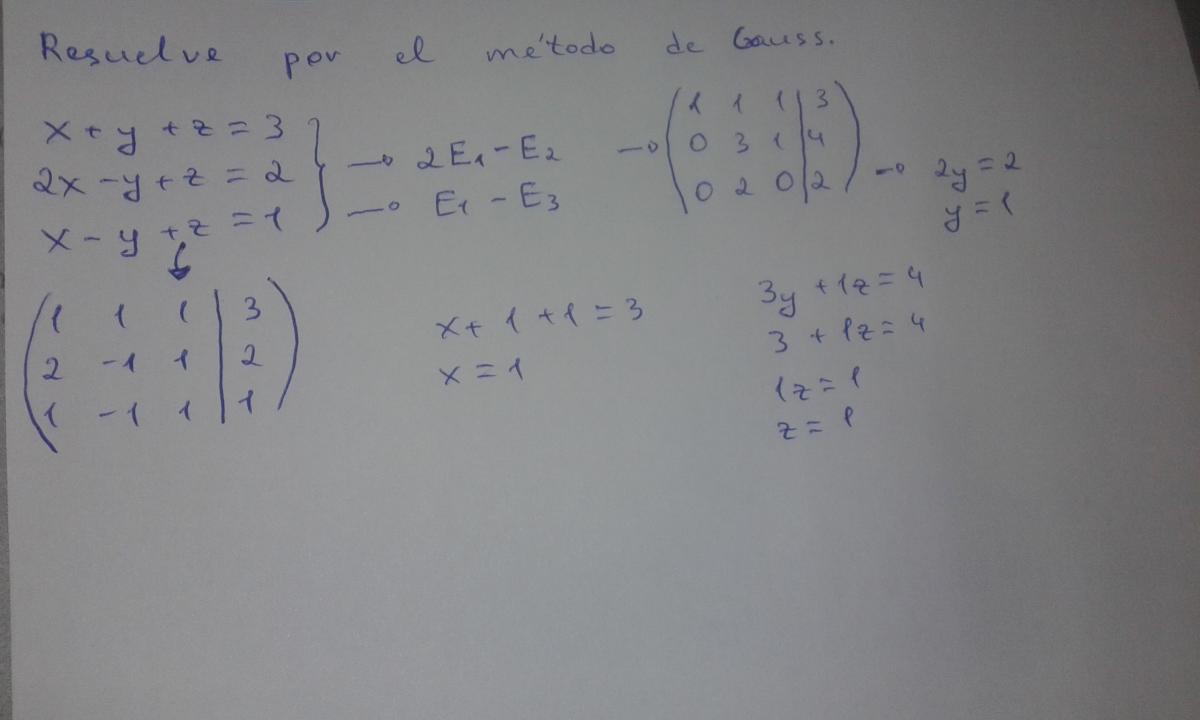 Resuelve por el método de Gauss.
x + y + z = 3
2x - y + z = 2
x - y + z = 1
→ 2E1 - E2
→ E1 - E3
→
1 1 1 | 3
0 3 1 | 4
0 2 0 | 2
→ 2y = 2
y = 1
1 1 1 | 3
2 -1 1 | 2
1 -1 1 | 1
x + 1 + 1 = 3
x = 1
3y + 1z = 4
3 + 1z = 4
1z = 1
z = 1